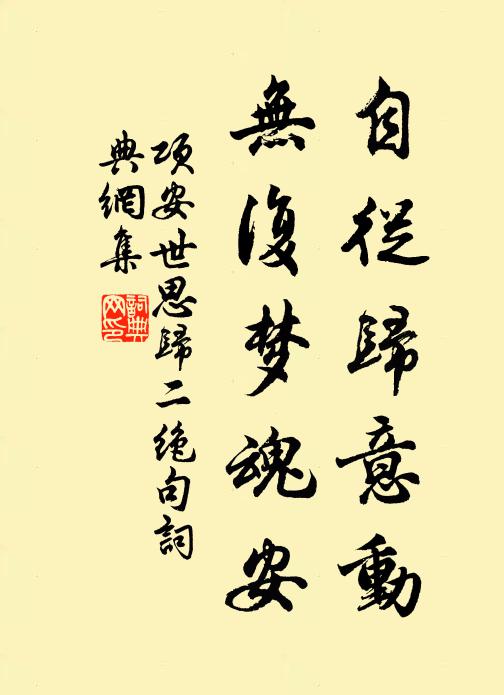 自從歸意動
無復梦魂安
項安世思歸二絶句詞
典網集
詞典
网印